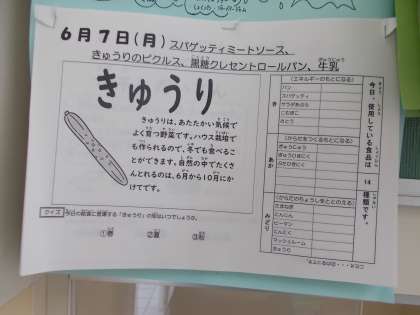 6月7日(月)スパゲッティミートソース、
きゅうりのピクルス、黒糖クレセントロールパン、牛乳
きゅうり
きゅうりは、あたたかい気候で
よく育つ野菜です。ハウス栽培で
も作られるので、冬でも食べるこ
とができます。自然の中でたくさ
んとれるのは、6月から10月にか
けてです。
クイズ 今日の給食に登場する「きゅうり」の旬はいつでしょうか。
①春 ②夏 ③秋
今日、使用している食品は 14 種類です。
き
(エネルギーのもとになる)
パン
スパゲッティ
サラダあぶら
こむぎこ
さとう
あか
(からだをつくるもとになる)
ぎゅうにゅう
ぎゅうひきにく
ぶたひきにく
みどり
(からだのちょうしをととのえる)
たまねぎ
にんじん
ピーマン
にんにく
マッシュルーム
きゅうり